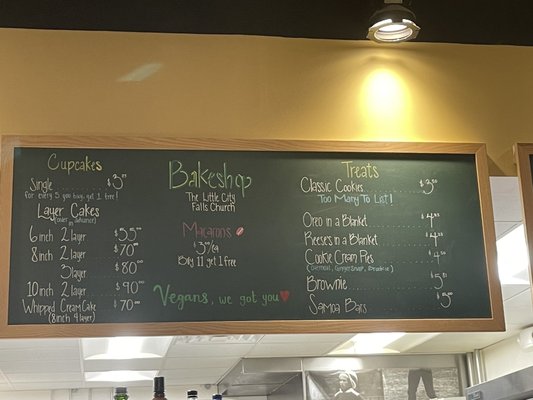 Cupcakes
Single $3
for every 5 you buy, get 1 free!
Layer Cakes
(order in advance)
6 inch 2 layer $55
8 inch 2 layer $70
3 layer $80
10 inch 2 layer $90
Whipped Cream Cake $70
(8 inch 4 layer)
Bakeshop
The Little City
Falls Church
Macarons
$3 /ea
Buy 11 get 1 free
Vegans, we got you
Treats
Classic Cookies $3.50
Too Many To List!
Oreo in a Blanket $4
Reeses in a Blanket $4
Cookie Cream Pies $4.50
(Oatmeal, Gingersnap, )
Brownie $5
Samoa Bars $5